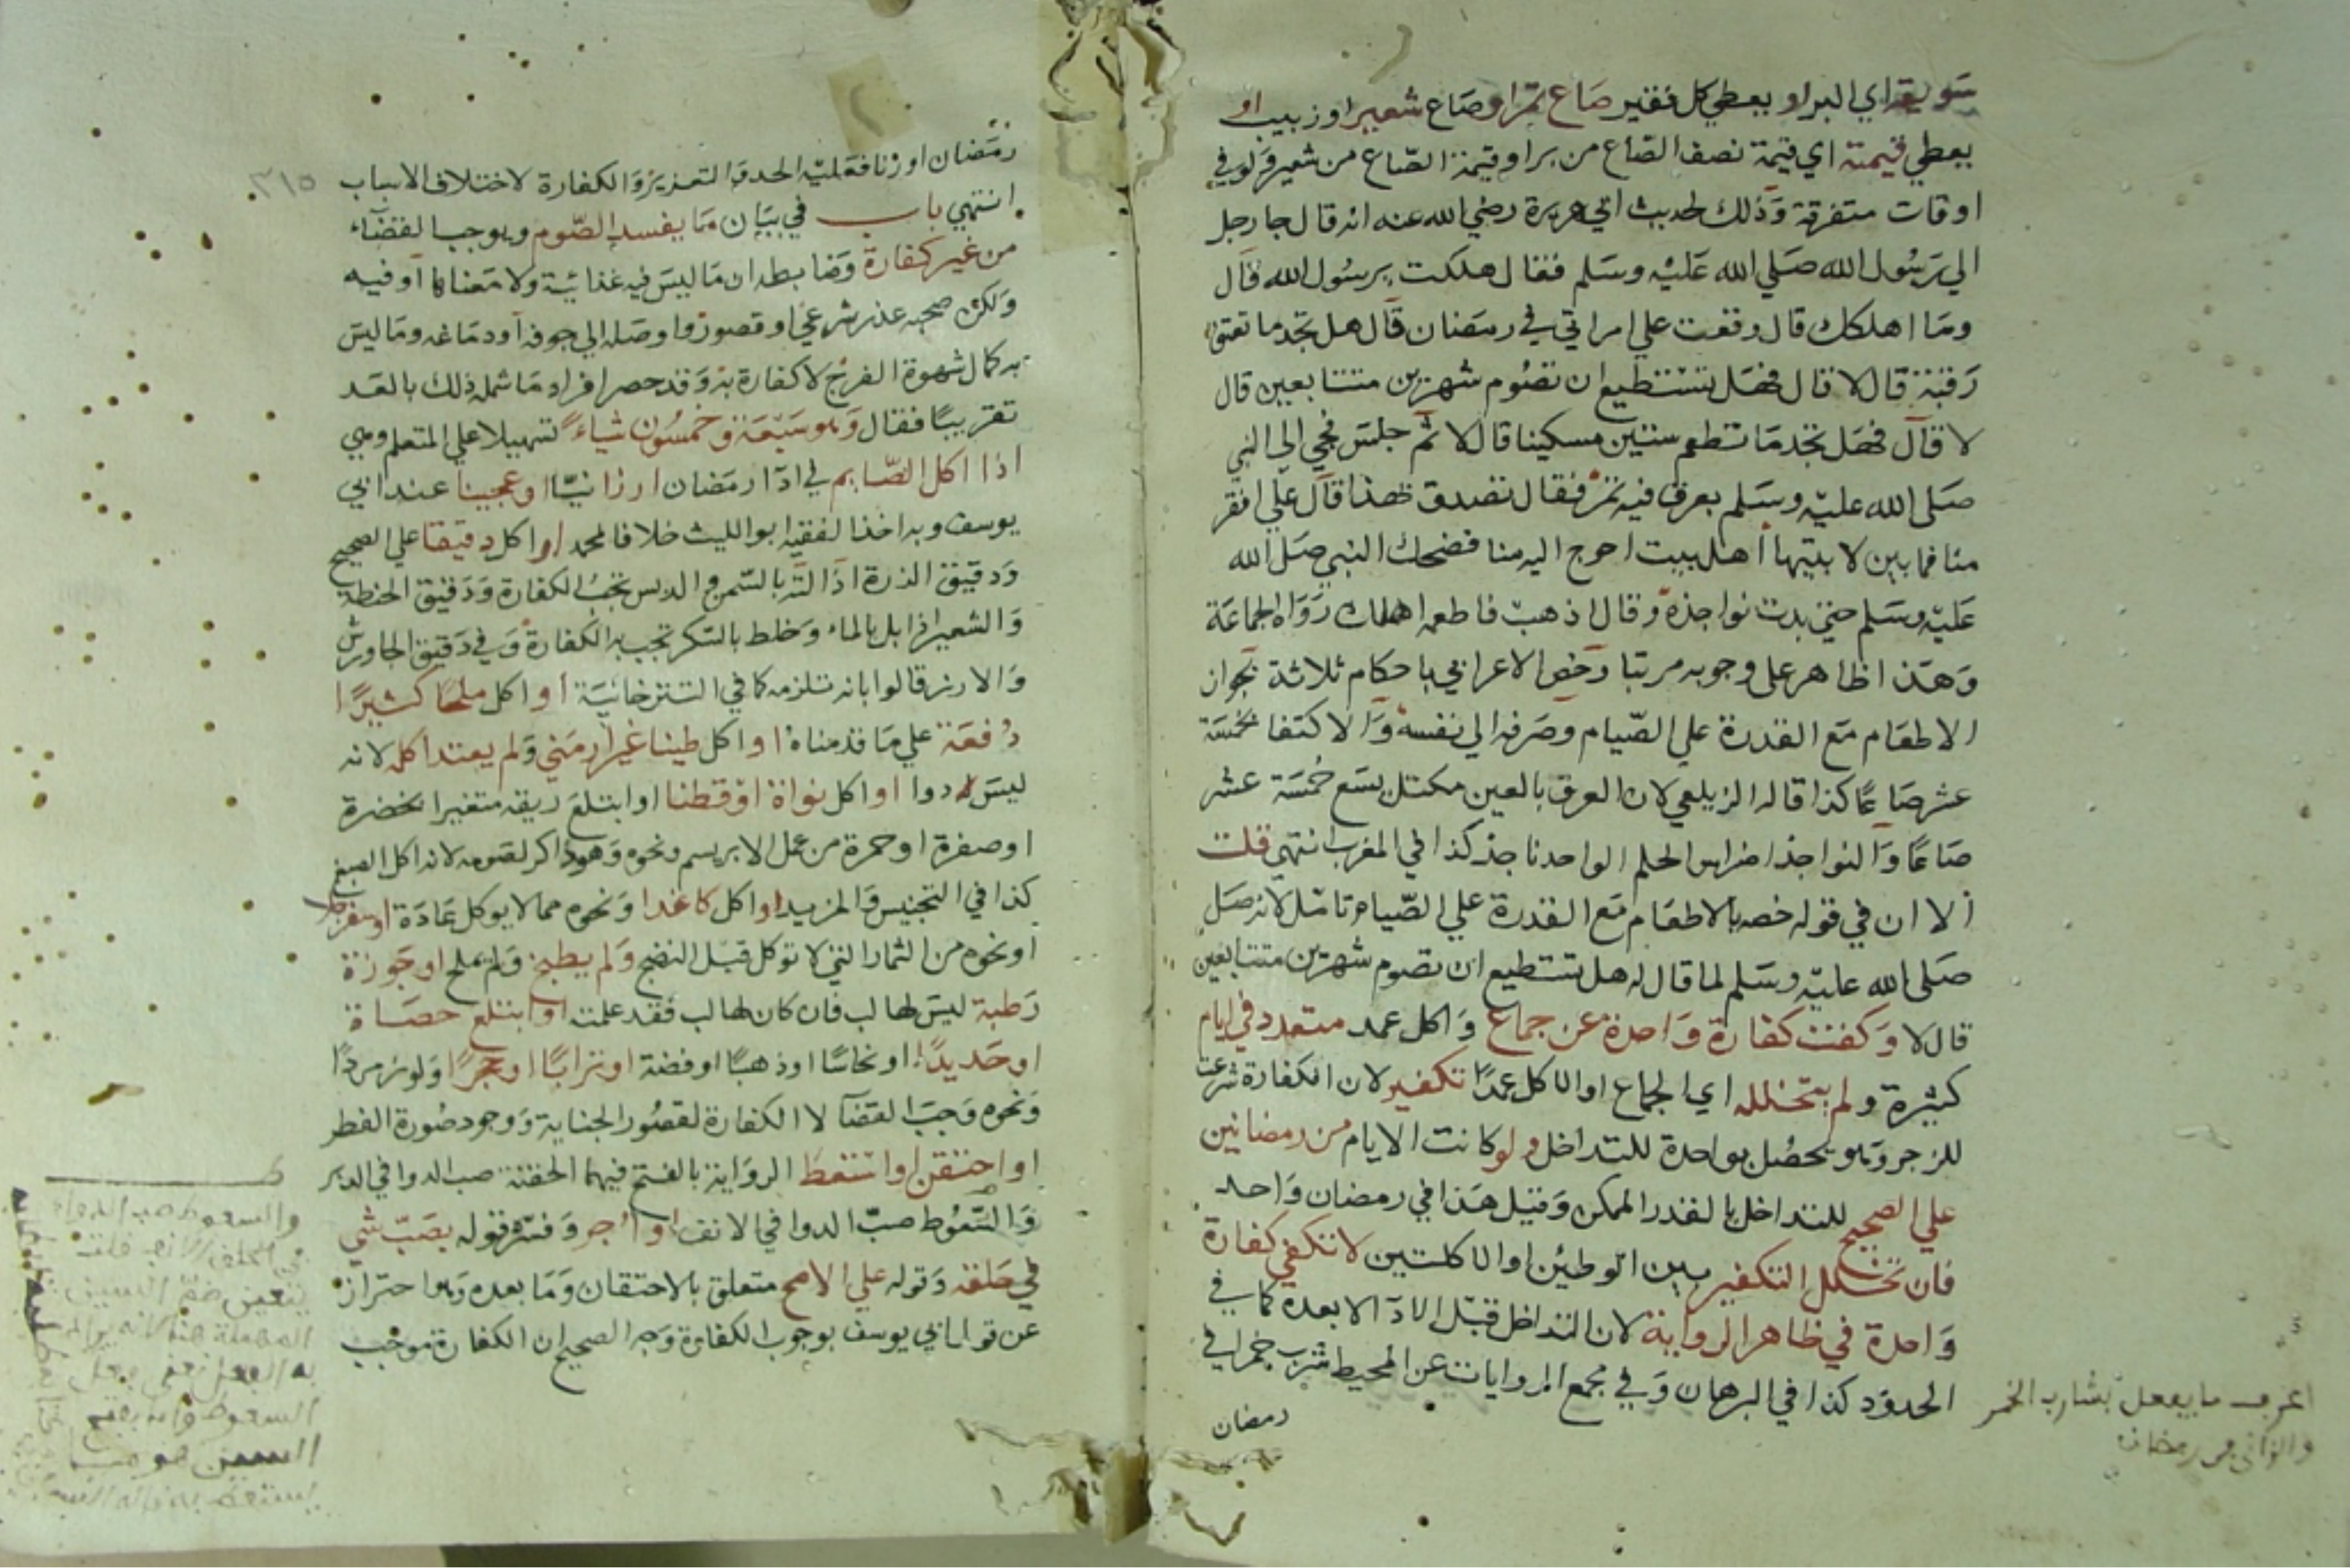 سويقه اي البر او يعطي كل فقير صاع تمر او صاع شعير او زبيب او
يعطي قيمته اي قيمة نصف الصاع من بر او قيمة الصاع من شعير ولو في
اوقات متفرقة وذلك لحديث ابي هريرة رضي الله عنه انه قال جا رجل
الي رسول الله صلي الله عليه وسلم فقال هلكت يرسول الله قال
وما اهلكك قال وقعت علي امراتي في رمضان قال هل تجد ما تعتق
رقبة قال لا قال فهل تستطيع ان تصوم شهرين متتابعين قال
لا قال فهل تجد ما تطعم ستين مسكينا قال لا ثم جلس فجي الي النبي
صلي الله عليه وسلم بعرق فيه تمر فقال تصدق بهذا قال علي افقر
منا فما بين لابتيها اهل بيت احوج اليه منا فضحك النبي صلي الله
عليه وسلم حتي بدت نواجذه وقال اذهب فاطعمه اهلك رواه الجماعة
وهذا ظاهر علي وجوبه مرتبا رخص الاعرابي باحكام ثلاثة بجواز
الاطعام مع القدرة علي الصيام وصرفه الي نفسه والاكتفا بخمسة
عشر صاعا كذا قاله الزيلعي لان العرق بالعين مكتل يسع خمسة عشر
صاعا والنواجذ اضراس الحلم الواحد ناجذ كذا في المغرب انتهي قلت
الا ان في قوله خصه بالاطعام مع القدرة علي الصيام تامل لانه صلي
صلي الله عليه وسلم لما قال له هل تستطيع ان تصوم شهرين متتابعين
قال لا وكفت كفارة واحدة عن جماع واكل عمد متعدد في ايام
كثيرة ولم يتخلله اي الجماع او الاكل عمدا تكفير لان الكفارة شرعت
للزجر وهو يحصل بواحدة للتداخل ولو كانت الايام من رمضانين
علي الصحيح للتداخل بالقدر الممكن وقيل هذا في رمضان واحد
فان تخلل التكفير بين الوطئين او الاكلتين لا تكفي كفارة
واحدة في ظاهر الرواية لان التداخل قبل الادآ لا بعده كما في
الحدود كذا في البرهان وفي مجمع الروايات عن المحيط شرب خمرا في
رمضان
اعرف ما يفعل بشارب الخمر
والزاني في رمضان
رمضان او زنا فعليه الحد والتعزير والكفارة لاختلاف الاسباب
٢١٥
انتهي باب في بيان ما يفسد الصوم ويوجب القضآء
من غير كفارة وضابطه ان ما ليس فيه غذائية ولا معناها او فيه
ولكن صحبه عذر شرعي او قصور واوصله الي جوفه او دماغه وما ليس
به كمال شهوة الفرج لا كفارة به وقد حصر افراد ما شمله ذلك بالعد
تقريبا فقال وهو سبعة وخمسون شياء تسهيلا علي المتعلم وهي
اذا اكل الصايم في ادآ رمضان ارزا نيا او عجينا عند ابي
يوسف وبه اخذ الفقيه ابو الليث خلافا لمحمد او اكل دقيقا علي الصحيح
ودقيق الذرة اذا لته بالسمن والدبس تجب الكفارة ودقيق الحنطة
والشعير اذا بل بالماء وخلط بالسكر تجب به الكفارة وفي دقيق الجاورش
والارز قالوا بانه تلزمه كما في التترخانية او اكل ملحا كثيرا
دفعة علي ما قدمناه او اكل طينا غير ارمني ولم يعتد اكله لانه
ليس دوا او اكل نواة او قطنا او ابتلع ريقه متغيرا بخضرة
او صفرة او حمرة من عمل الابريسم ونحوه وهو ذاكر لصومه لانه اكل الصبغ
كذا في التجنيس والمزيد او اكل كاغدا ونحوه مما لا يوكل عادة او سفرجلا
او نحوه من الثمار التي لا توكل قبل النضج ولم يطبخ ولم يملح او جوزة
رطبة ليس لها لب فان كان لها لب فقد علمت او ابتلع حصاة
او حديدا او نحاسا او ذهبا او فضة او ترابا او حجرا ولو زمردا
ونحوه وجب القضآ لا الكفارة لقصور الجناية ووجود صورة الفطر
او احتقن او استعط الرواية بالفتح فيهما الحقنة صب الدوا في الدبر
والسعوط صب الدوا في الانف او اوجر وفسره قوله بصب شي
في حلقه وقوله علي الاصح متعلق بالاحتقان وما بعده وهو احتراز
عن قول ابي يوسف بوجوب الكفارة وجه الصحيح ان الكفارة موجب
والسعوط صب الدواء
في الحلق
يتعين ضم السين
المهملة هنا لانه يراد
به الفعل
السعوط وانه بفتح
السين هو ما
يستعط به